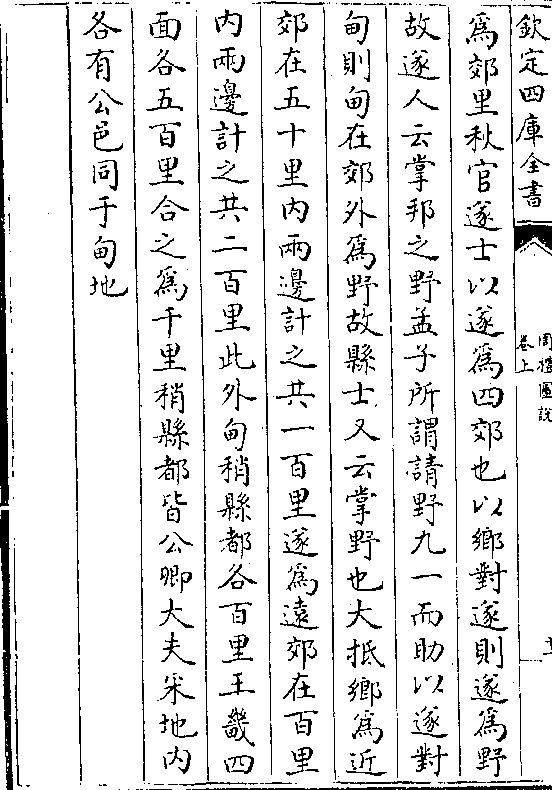 欽定四庫全書
周禮圖說
卷上
為郊里秋官遂士以遂為四郊也以鄉對遂則遂為野
故遂人云掌邦之野孟子所謂請野九一而助以遂對
甸則甸在郊外為野故縣士又云掌野也大抵鄉為近
郊在五十里內兩邊計之共一百里遂為遠郊在百里
內兩邊計之共二百里此外甸稍縣都各百里王畿四
面各五百里合之為千里稍縣都皆公卿大夫采地內
各有公邑同于甸地